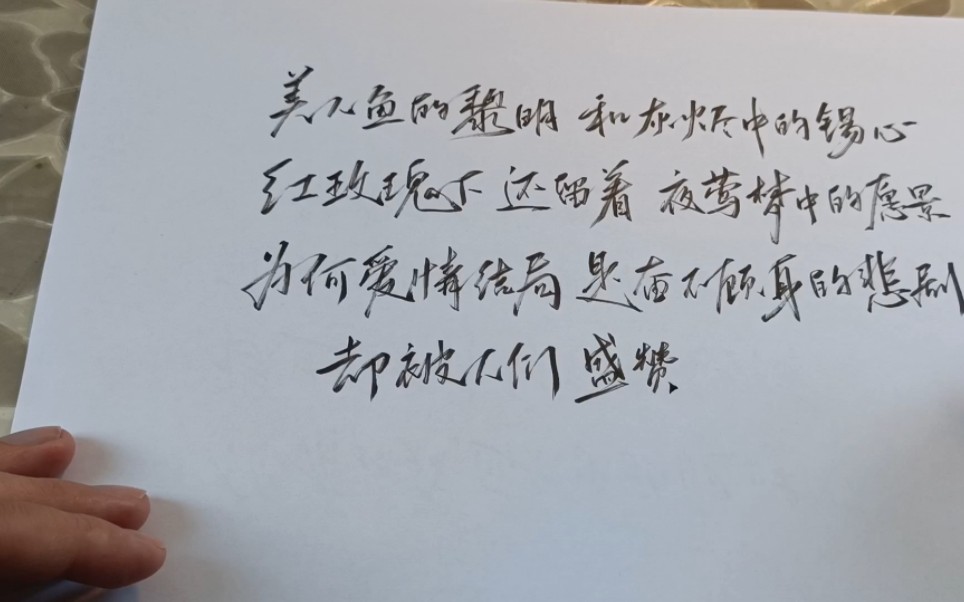 美人鱼的黎明 和灰烬中的锡心
红玫瑰下 还留着 夜莺梦中的愿景
为何爱情结局 是奋不顾身的悲剧
却被人们 盛赞